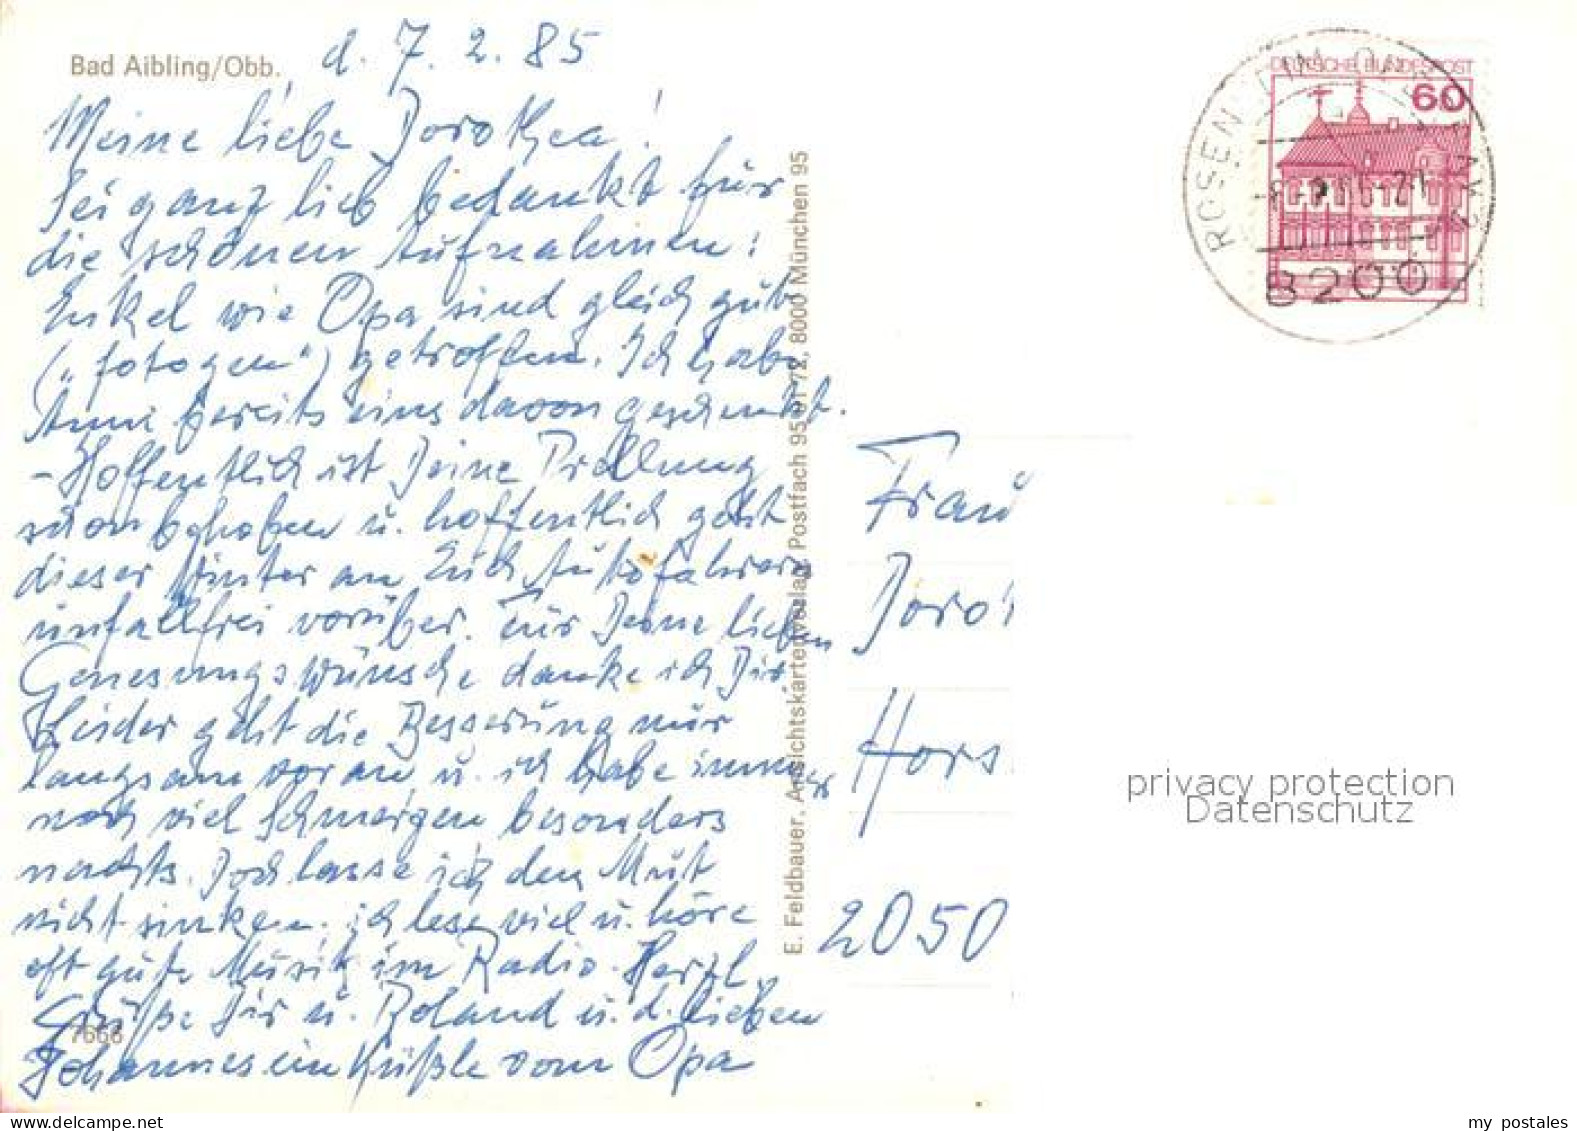 Bad Aibling/Obb. d. 7. 2. 85
Meine liebe Dorothea!
Sei ganz lieb bedankt für
die schönen Aufnahmen:
Enkel wie Opa sind gleich gut
(„fotogen“) getroffen. Ich habe
Anne bereits eins davon geschenkt.
- Hoffentlich ist Deine Prellung
schon behoben u. hoffentlich geht
dieser Winter an Euch Autofahrern
unfallfrei vorüber. Für Deine lieben
Genesungswünsche danke ich Dir
Leider geht die Besserung nur
langsam voran u. ich habe immer
noch viel Schmerzen besonders
nachts. Doch lasse ich den Mut
nicht sinken. ich lese viel u. höre
oft gute Musik im Radio. Herzl.
Grüße Dir u. Roland u. d. lieben
Johannes ein Küßle vom Opa
7666
E. Feldbauer, Ansichtskartenverlag, Postfach 95 01 72, 8000 München 95
DEUTSCHE BUNDESPOST
60
ROSENHEIM
8200
Frau
Doro
Hors
2050
privacy protection
Datenschutz
my postales